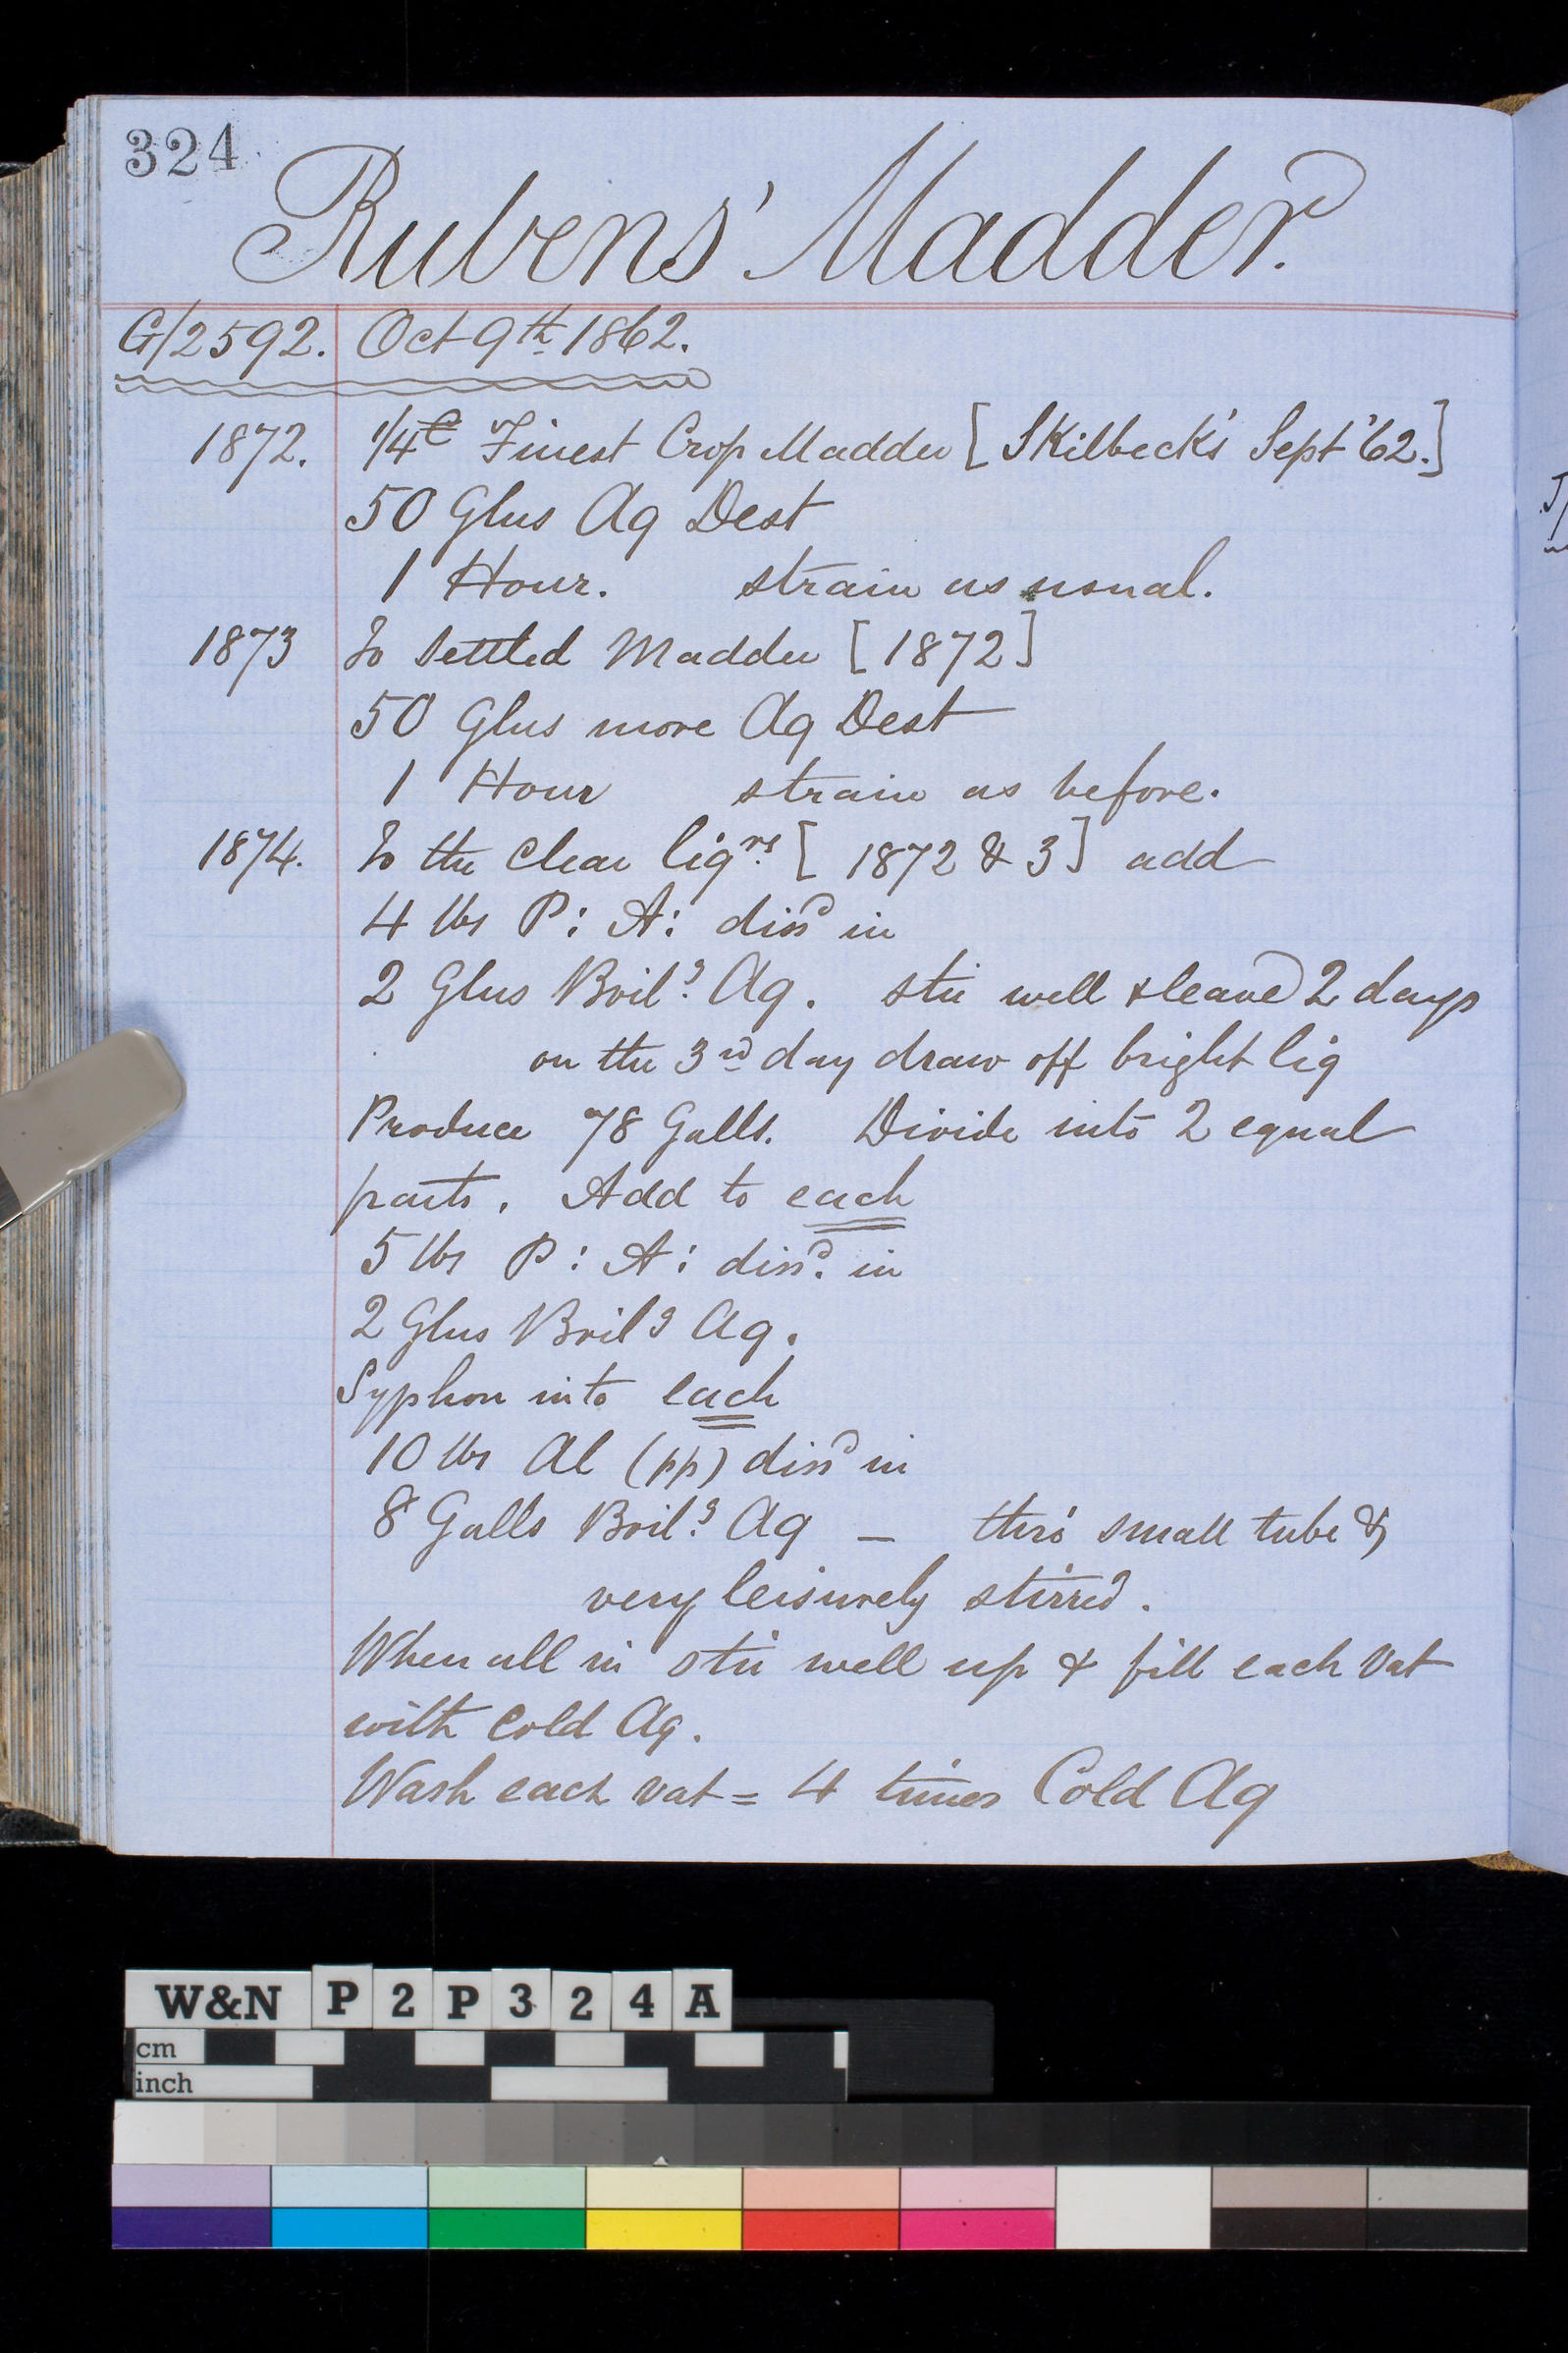 324
Rubens' Madder.
G/2592. Oct 9th 1862.
1872. 1/4 C Finest Crop Madder [Skilbeck's Sept '62.]
50 Glns Aq Dest
1 Hour. strain as usual.
1873 To Settled Madder [1872]
50 Glns more Aq Dest
1 Hour strain as before.
1874. To the Clear liqrs. [1872 & 3] add
4 lbs P: A: dissd in
2 Glns Boilg. Aq. stir well & leave 2 days
on the 3rd day draw off bright liq
Produce 78 Galls. Divide into 2 equal
parts. Add to each
5 lbs P: A: dissd. in
2 Glns Boilg Aq.
Syphon into each
10 lbs Al (pp) dissd in
8 Galls Boilg. Aq — thro' small tube &
very leisurely stirred.
When all in stir well up & fill each vat
with Cold Aq.
Wash each vat = 4 times Cold Aq
W&N P2P324A
cm
inch